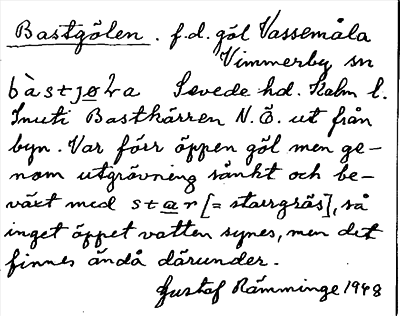 Bastgölen. f.d. göl Vassemåla
Vimmerby sn
bàstjøla Sevede hd. Kalm l.
Inuti Bastkärren N.Ö. ut från
byn. Var förr öppen göl men ge-
nom utgrävning sänkt och be-
växt med star [= starrgräs], så
inget öppet vatten synes, men det
finnes ändå därunder.
Gustaf Rämminge 1948